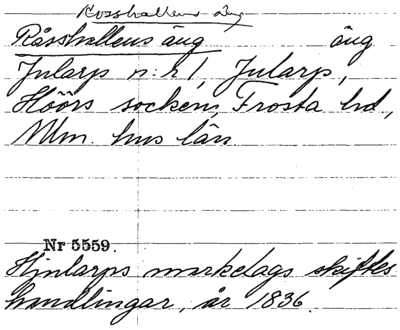 Rosshallens äng
Råsshallens äng äng
Jularp n:r 1, Jularp,
Höörs socken, Frosta hd,
Mlm. hus län
Nr 5559.
Hjularps markelags skiftes
handlingar, år 1836.